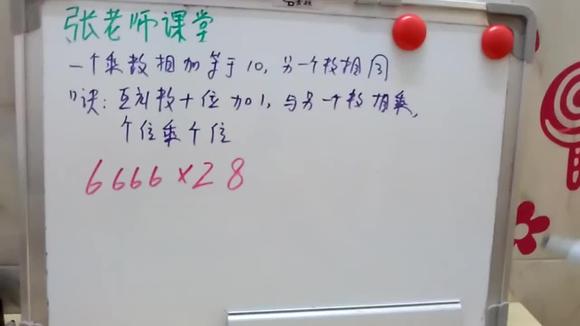 张老师课堂
一个乘数相加等于10,另一个数相同
口诀:互补数十位加1,与另一个数相乘,
个位乘个位
6666×28